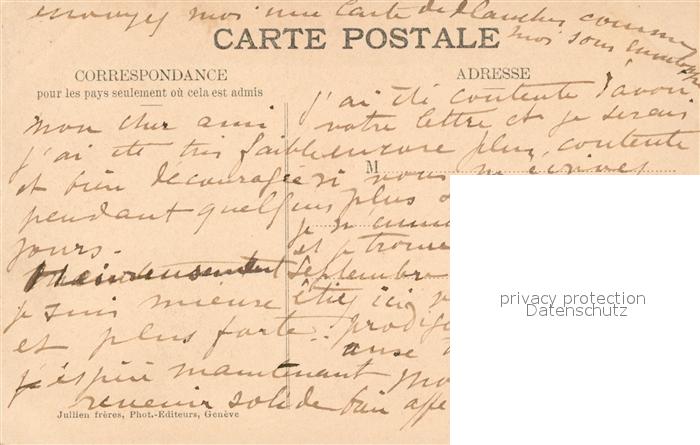 envoyez moi une Carte de Blanches comme
moi sous
CARTE POSTALE
CORRESPONDANCE
pour les pays seulement où cela est admis
ADRESSE
M
mon cher ami
j'ai ete très faible
et bien decouragée
pendant quelques
jours.
Heureusement
je suis mieux
et plus forte.
j'espère maintenant
revenir solide
j'ai été contente d'avoir
votre lettre et je serais
encore plus contente
si vous m'écrivez
plus
je m'
et je trouve
Septembre
étiez ici
bien
Jullien frères, Phot.-Editeurs, Genève
privacy protection
Datenschutz